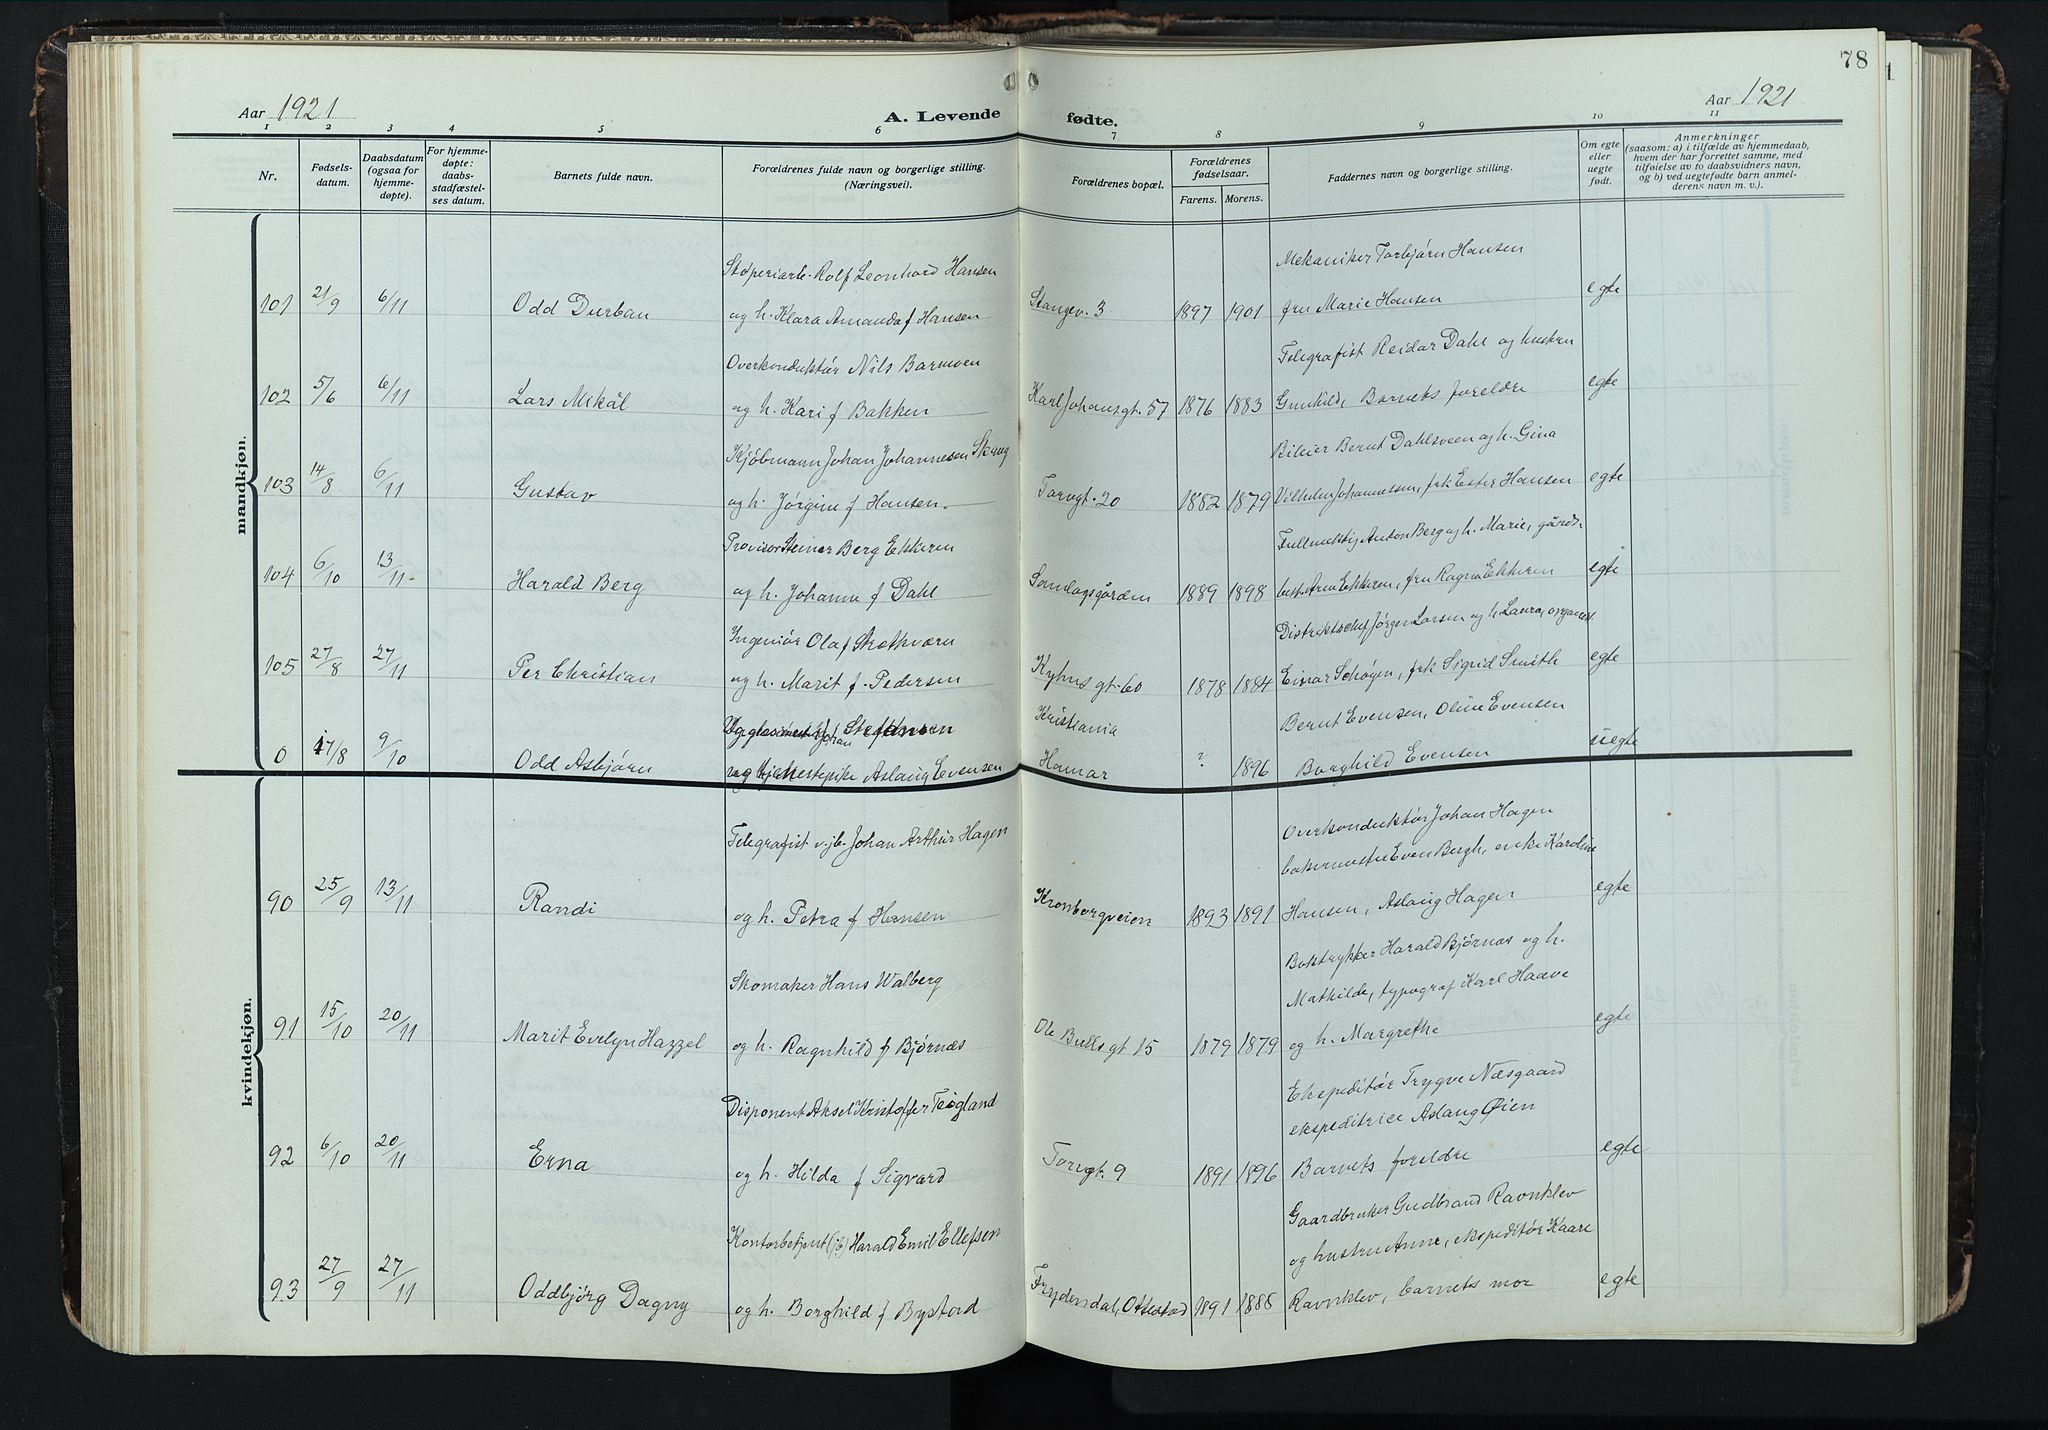 78
Aar 1921
A. Levende fødte.
Aar 1921
1 2 3 4 5 6 7 8 9 10 11
Nr.
Fødsels-
datum.
Daabsdatum
(ogsaa for
hjemme-
døpte).
For hjemme-
døpte:
daabs-
stadfæstel-
ses datum.
Barnets fulde navn.
Forældrenes fulde navn og borgerlige stilling.
(Næringsvei).
Forældrenes bopæl.
Forældrenes
fødselsaar.
Farens. Morens.
Faddernes navn og borgerlige stilling.
Om egte
eller
uegte
født.
Anmerkninger
(saasom: a) i tilfælde av hjemmedaab,
hvem der har forrettet samme, med
tilføielse av to daabsvidners navn,
og b) ved uegtefødte barn anmel-
derens navn m. v.).
mandkjøn.
Støperiarb. Rolf Leonhard Hansen
Mekaniker Torbjørn Hansen
101 21/9 6/11 Odd Durban og h. Klara Amanda f Hansen Stangev. 3 1897 1901 fru Marie Hansen egte
Overkonduktør Nils Barmoen
Telegrafist Reidar Dahl og hustru
102 5/6 6/11 Lars Mikál og h. Kari f Bakken Karl Johansgt. 57 1876 1883 Gunhild, Barnets foreldre egte
Kjøbmann Johan Johannesen Skaug
Bileier Bernt Dahlsveen og h. Gina
103 14/8 6/11 Gustav og h. Jørgine f Hansen. Torvgt. 20 1882 1879 Vilhelm Johannessen, frk Ester Hansen egte
Provisor Steinar Berg Ekkeren
Fullmektig Anton Berg og h. Marie, gårds
104 6/10 13/11 Harald Berg og h. Johanne f Dahl 1889 1898 best. Arne Ekkeren, fru Ragna Ekkeren egte
Ingeniør Olaf Strethværn
Distriktschef Jørgen Larsen og h. Laura, organist
105 27/8 27/11 Per Christian og h. Marit f. Pedersen Kyhns gt. 60 1878 1884 Einar Schøyen, frk Sigrid Smith egte
Johan Stefansen
Kristiania
Bernt Evensen, Oline Evensen
0 17/8 9/10 Odd Asbjørn Aslaug Evensen Hamar ? 1896 Borghild Evensen uegte
kvindekjøn.
Telegrafist v. jb. Johan Arthur Hagen
Overkonduktør Johan Hagen
bakermester Even Bergh, enke Karoline
90 25/9 13/11 Randi og h. Petra f Hansen Kronborgveien 1893 1891 Hansen, Aslaug Hagen egte
Skomaker Hans Walberg
Boktrykker Harald Bjørnæs og h.
Mathilde, typograf Karl Haave
91 15/10 20/11 Marit Evelyn Hazzel og h. Ragnhild f Bjørnæs Ole Bulls gt 15 1879 1879 og h. Margrethe egte
Disponent Aksel Kristoffer Teigland
Ekspeditør Trygve Næsgaard
ekspeditrice Aslaug Øien
92 6/10 20/11 Erna og h. Hilda f Sigvard Torvgt. 9 1891 1896 Barnets foreldre egte
Kontorbetjent (jb) Harald Emil Ellefsen
Gaardbruker Gudbrand Ravnklev
og hustru Anne, ekspeditør Kaare
93 27/9 27/11 Oddbjørg Dagny og h. Borghild f Bystørd Frydendal, Ottestad 1891 1886 Ravnklev, barnets mor egte